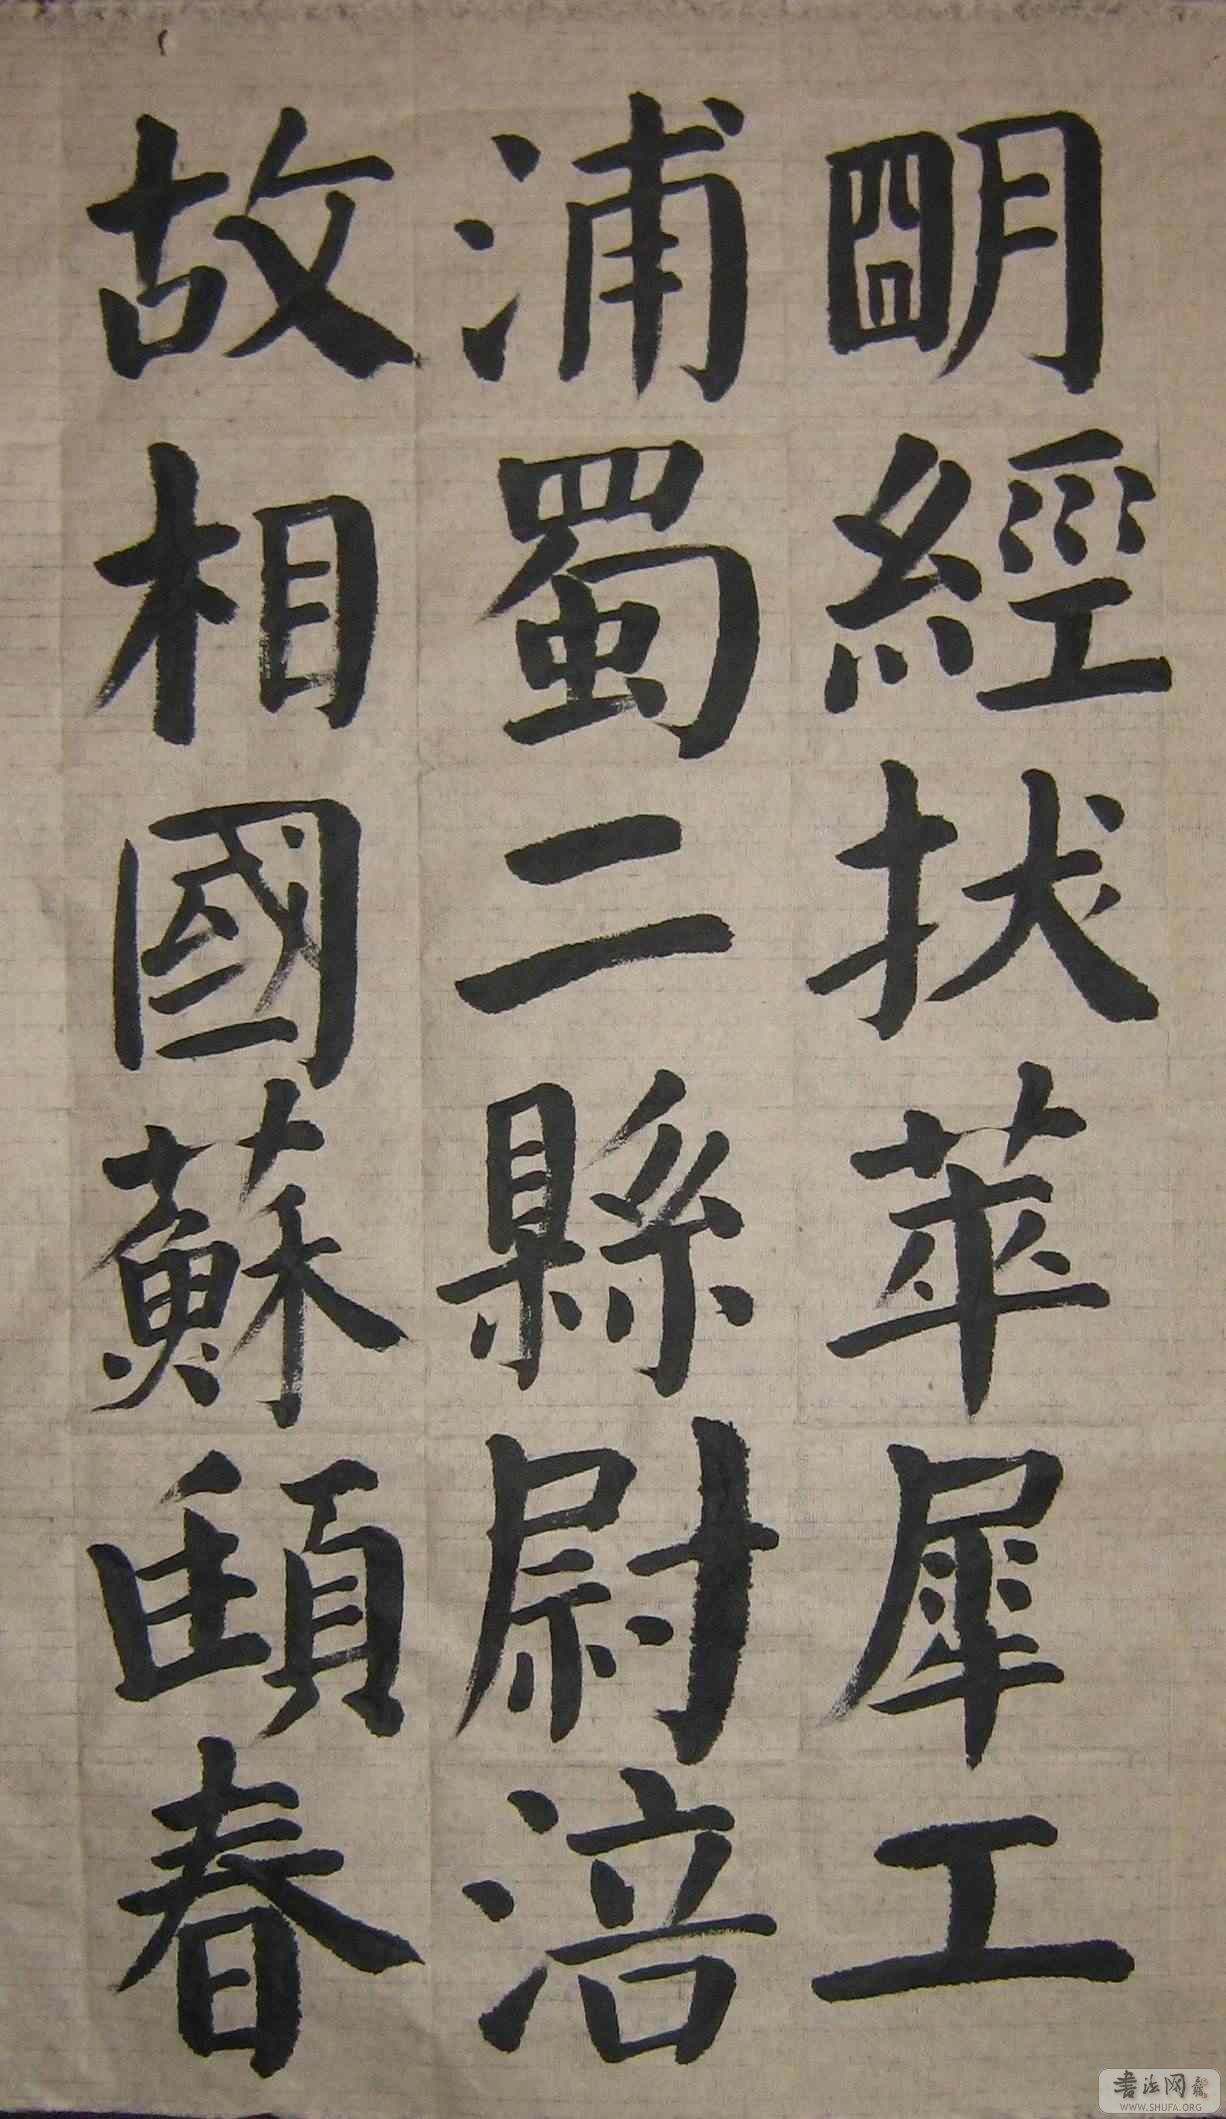 明經拔萃犀工
浦蜀二縣尉涪
故相國蘇頲春
書法网
WWW.SHUFA.ORG